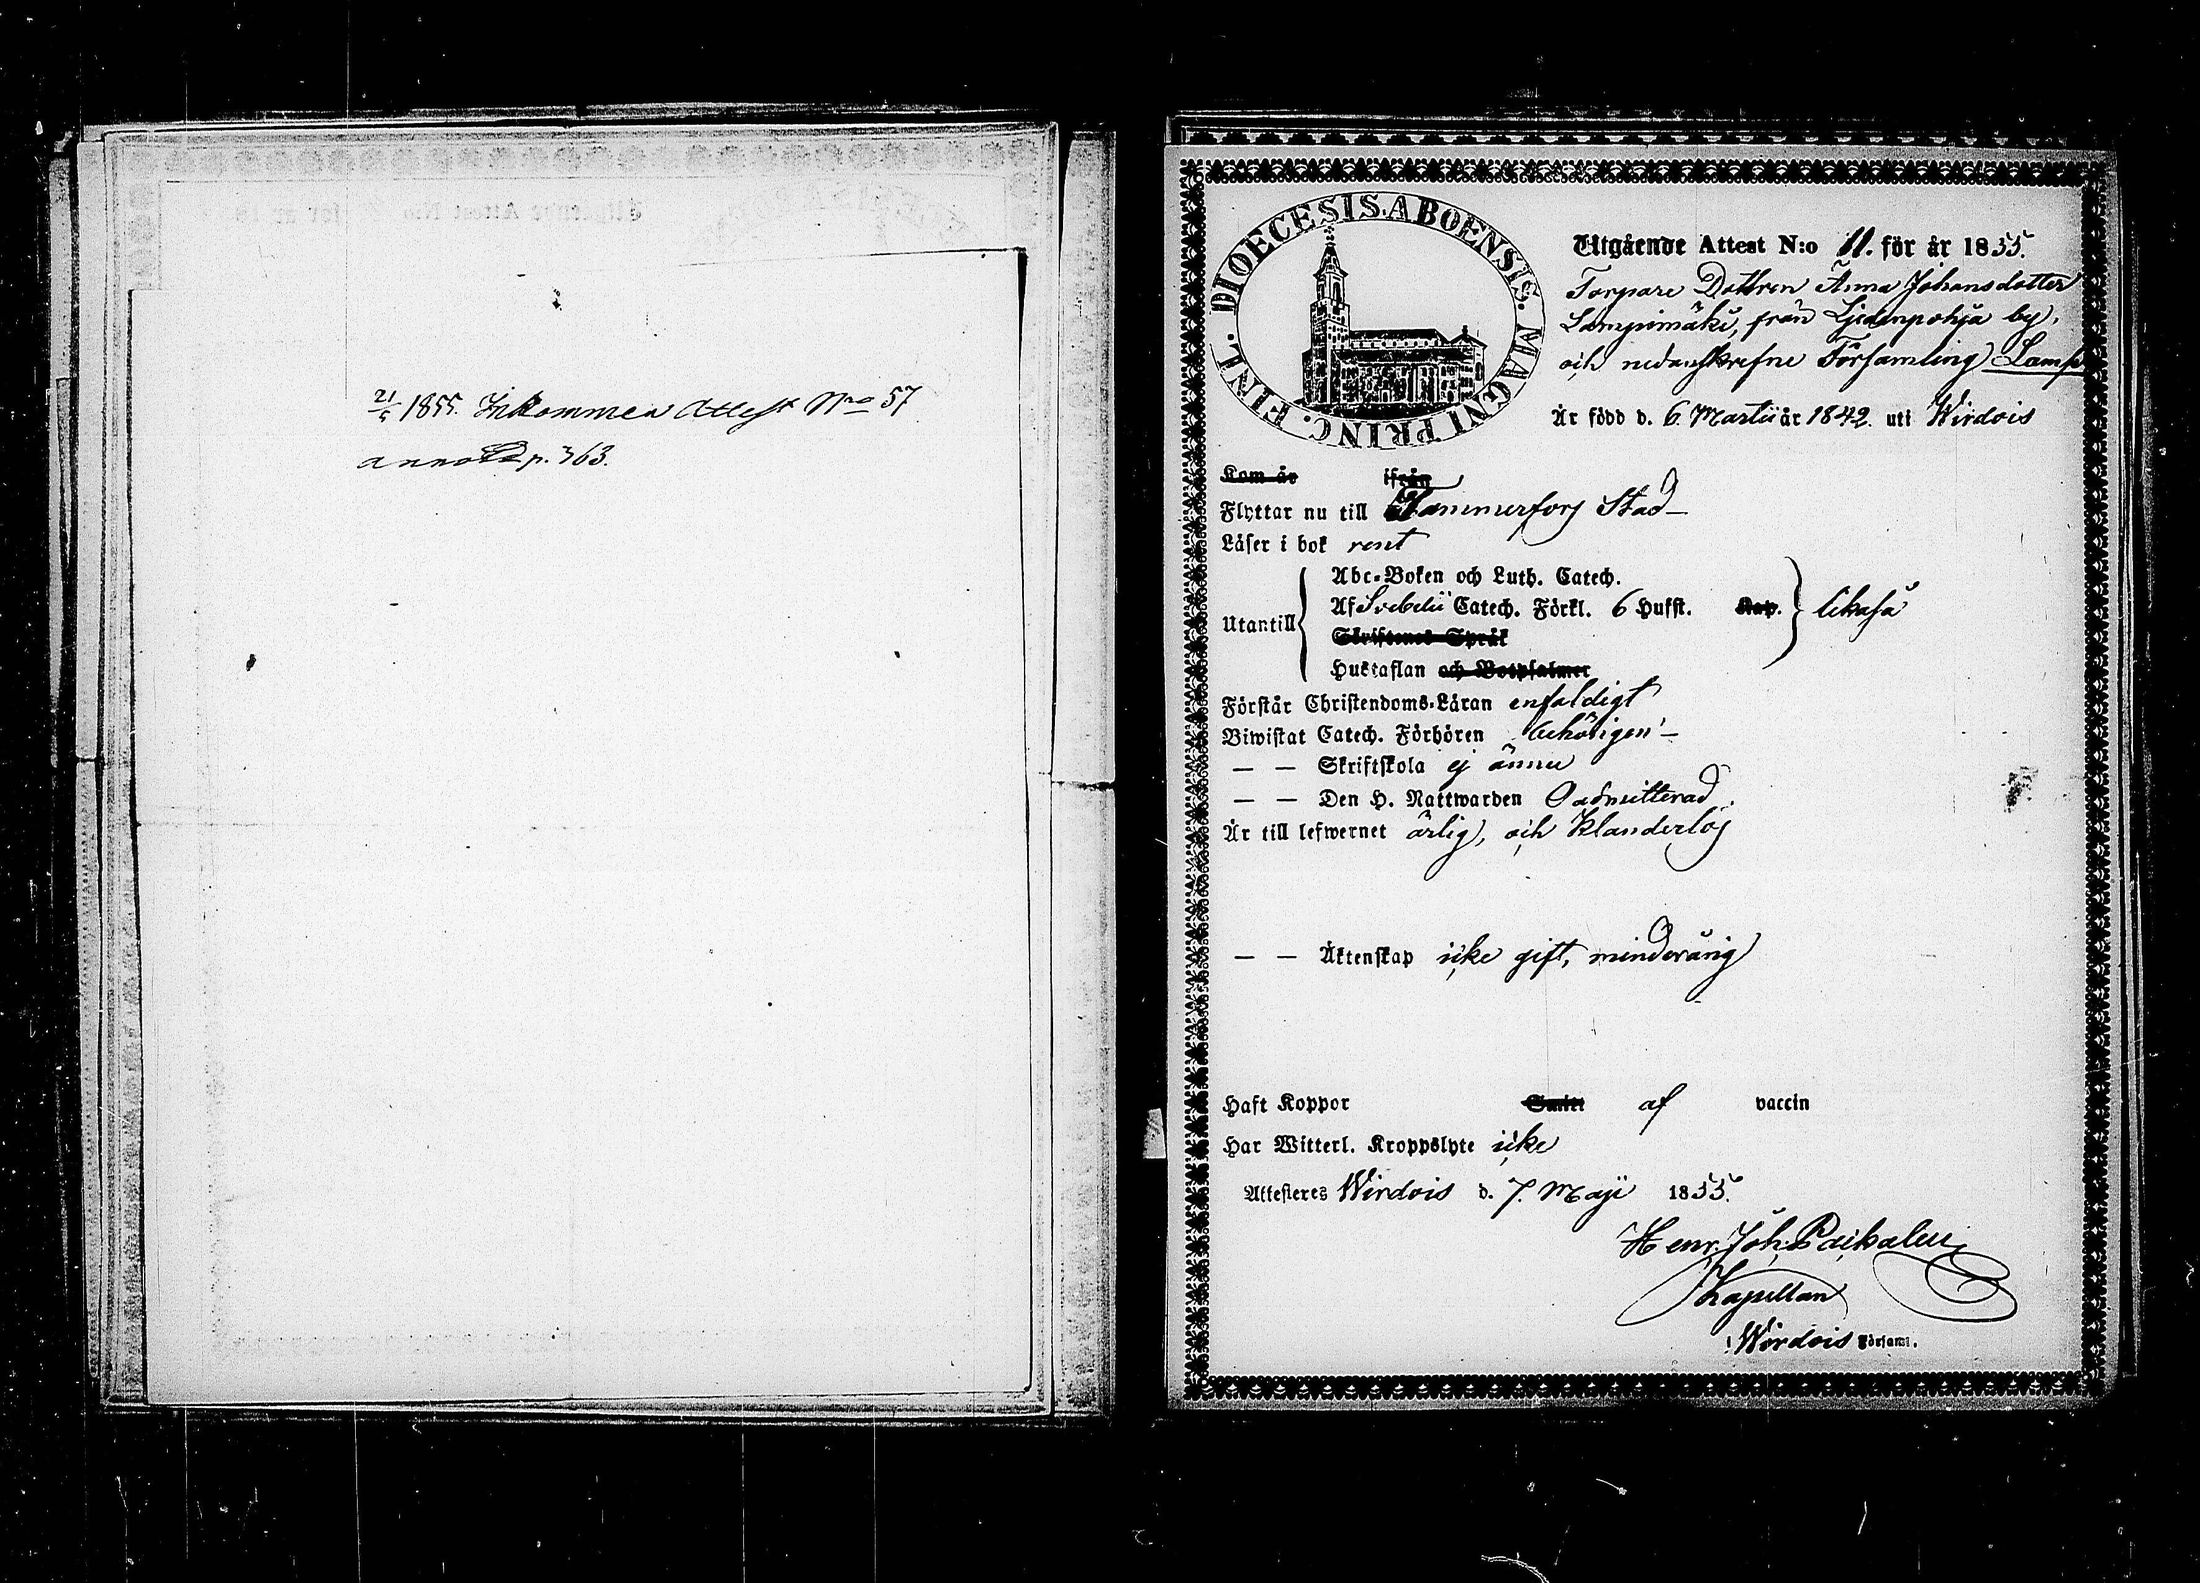 21/5 1855. Inkommen Attest Nro 57
annot p. 363.
DIOECESIS. ABOENSIS. MAGNI PRINC. FINL.
Utgående Attest N:o 11. för år 1855.
Torpare Dottren Anna Johansdotter
Lampimäki, från Ljedenpohja by,
och nedanskrefne Församling Lamp
Är född d. 6. Martii år 1842. uti Wirdois
Kom år ifrån
Flyttar nu till Tammerfors Stad
Läser i bok rent
Utantill
Abc-Boken och Luth. Catech.
Af Svebelii Catech. Förkl. 6 Hufst. Kap. likaså
Skriftenes Språk
Hustaflan och Botpsalmer
Förstår Christendoms-Läran enfaldigt
Biwistat Catech. Förhören behörigen
— — Skriftskola ej ännu
— — Den H. Nattwarden Oadmitterad.
Är till lefwernet ärlig, och klanderlös
— — Äktenskap icke gift, minderårig
Haft Koppor Smitt af vaccin
Har Witterl. Kroppslyte icke
Attesteres Wirdois d. 7. Maji 1855.
Henr. Joh.
Kapellan
i Wirdois Församl.